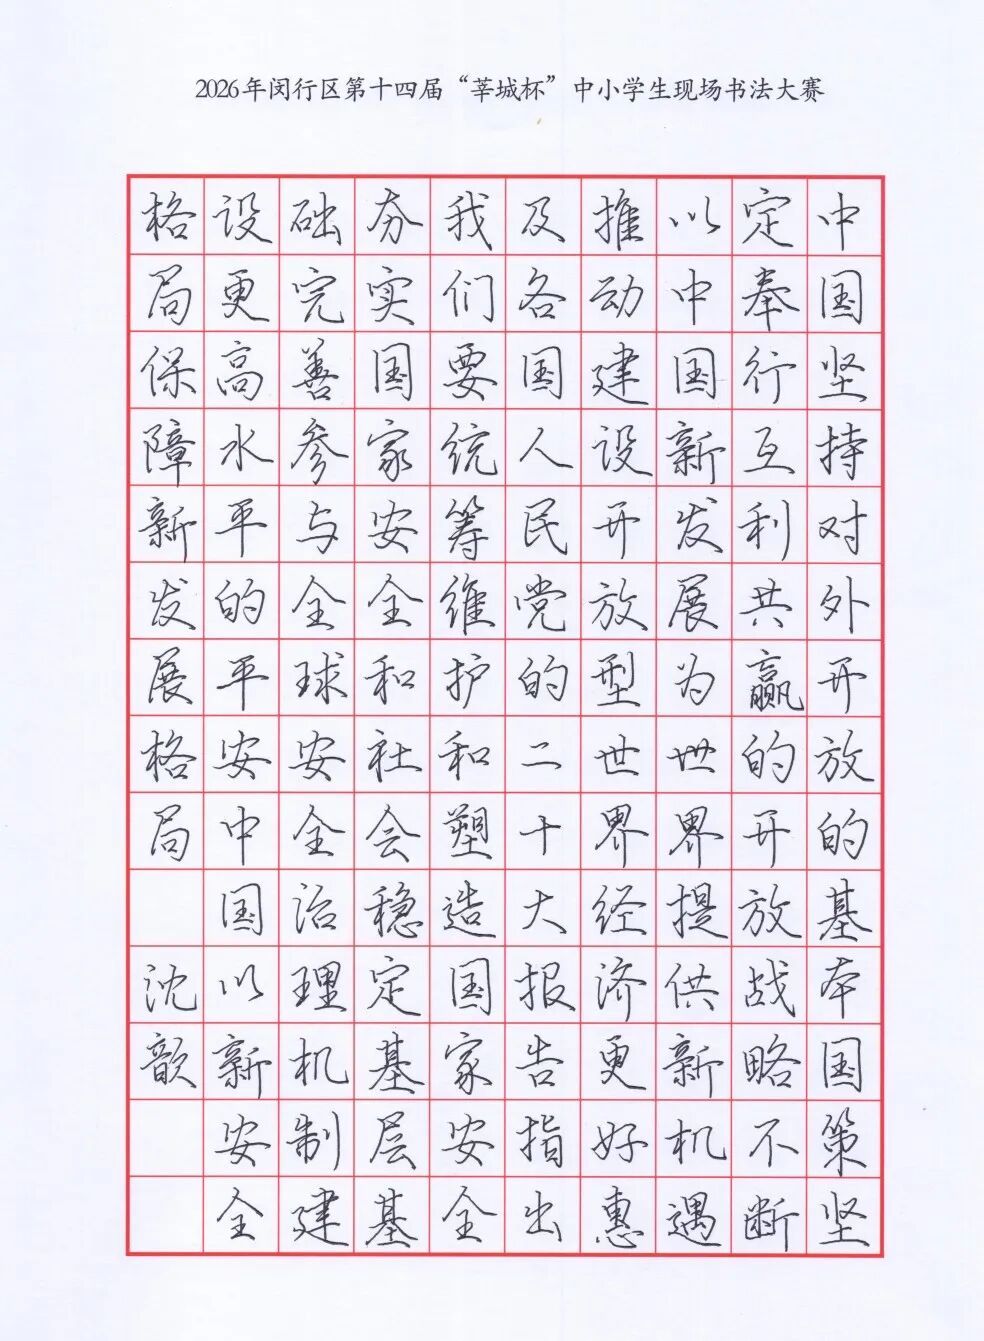 2026年闵行区第十四届“莘城杯”中小学生现场书法大赛
中国坚持对外开放的基本国策坚
定奉行互利共赢的开放战略不断
以中国新发展为世界提供新机遇
推动建设开放型世界经济更好惠
及各国人民党的二十大报告指出
我们要统筹维护和塑造国家安全
夯实国家安全和社会稳定基层基
础完善参与全球安全治理机制建
设更高水平的平安中国以新安全
格局保障新发展格局
沈歆